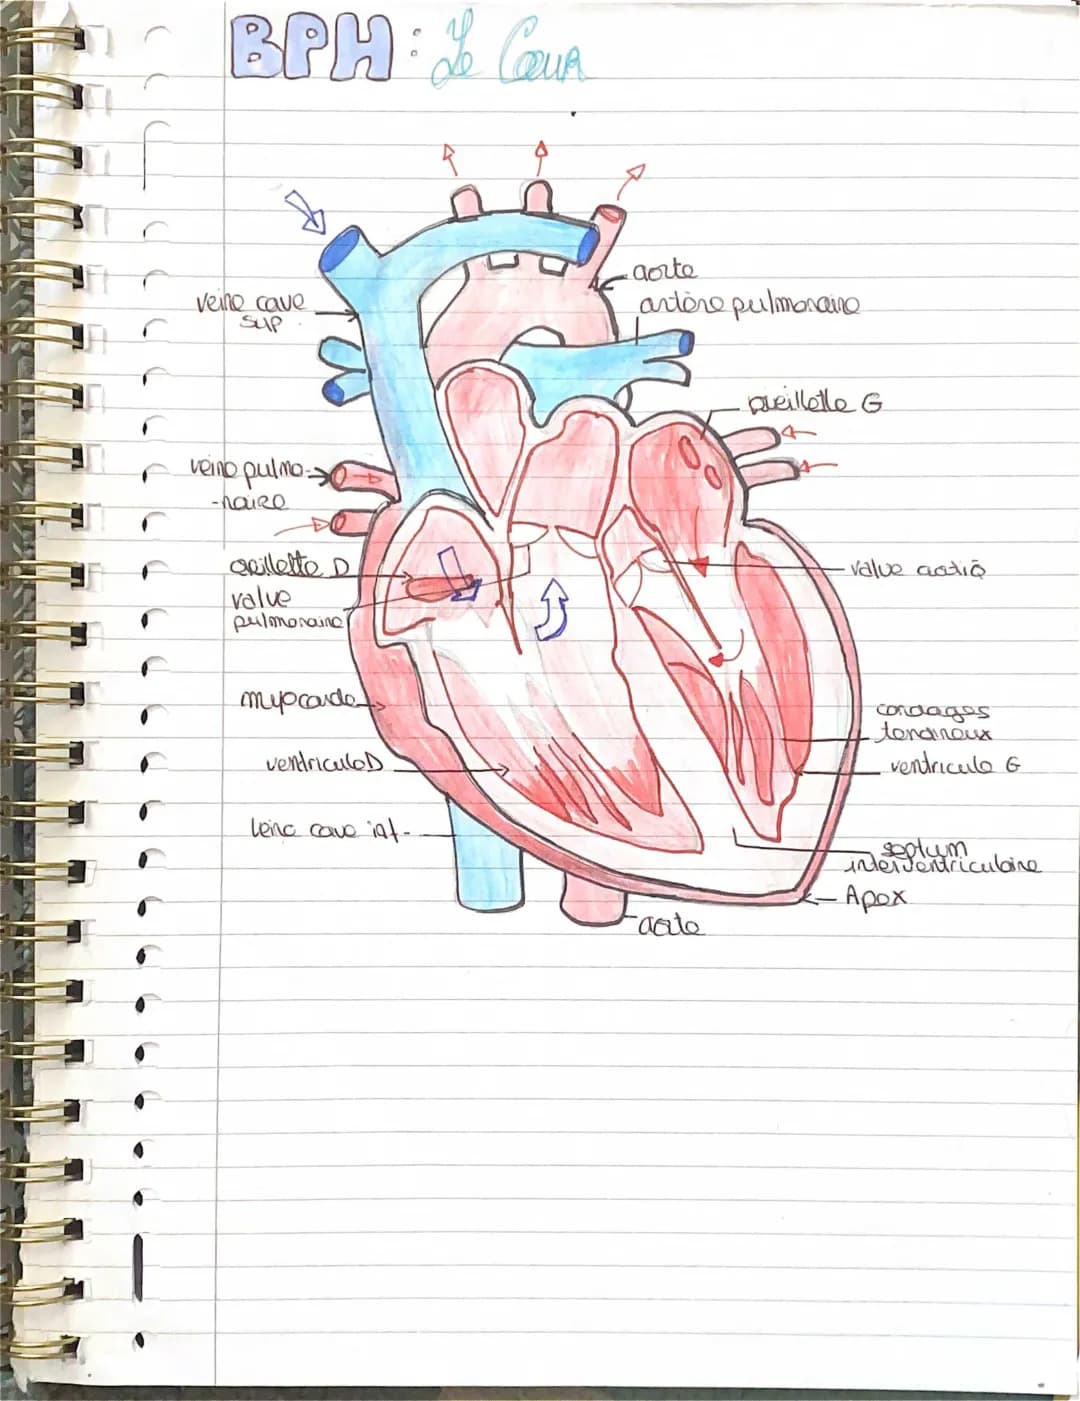 BPH : Le Cœur
aorte
veine cave
sup
artère pulmonaire
oreillette G
veine pulmo-
-naire
oreillette D
valve
pulmonaire
valve aortiq
myocarde
cordages
tendineux
ventricule D
ventricule G
veine cave inf-
septum
interventriculaire
Apex
aorte